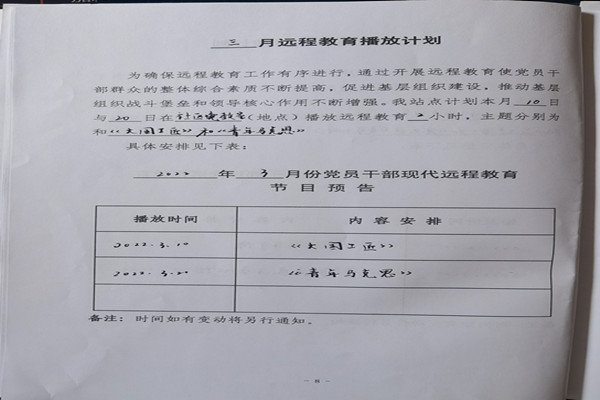 三 月远程教育播放计划
为确保远程教育工作有序进行，通过开展远程教育使党员干
部群众的整体综合素质不断提高，促进基层组织建设，推动基层
组织战斗堡垒和领导核心作用不断增强。我站点计划本月 10 日
与 20 日在 社区党教室（地点）播放远程教育 2 小时，主题分别为
和《大国工匠》和《青年马克思》
具体安排见下表：
2022 年 3 月份党员干部现代远程教育
节目预告
播放时间 内容安排
2022.3.10 《大国工匠》
2022.3.20 《青年马克思》
备注：时间如有变动将另行通知。